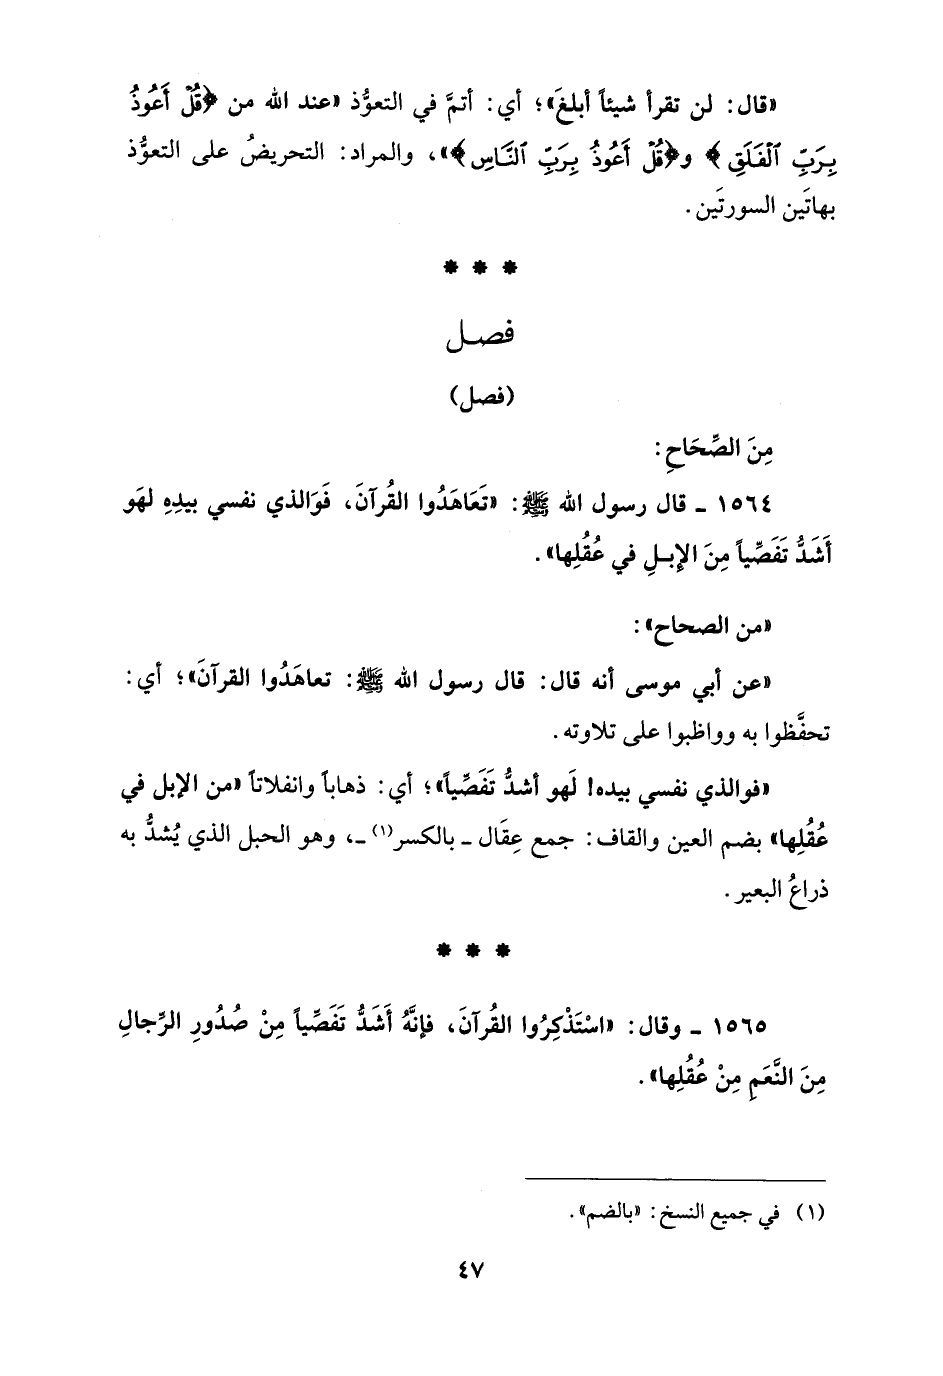 «قال: لن تقرأ شيئاً أبلغَ»؛ أي: أتمَّ في التعوُّذ «عند الله من ﴿قُلۡ أَعُوذُ
بِرَبِّ ٱلۡفَلَقِ﴾ و﴿قُلۡ أَعُوذُ بِرَبِّ ٱلنَّاسِ﴾»، والمراد: التحريضُ على التعوُّذ
بهاتَين السورتَين.
* * *
فصل
(فصل)
مِنَ الصِّحَاحِ:
١٥٦٤ ـ قال رسول الله ﷺ: «تَعَاهَدُوا القُرآنَ، فَوَالذي نفسي بيدِهِ لهَو
أَشَدُّ تَفَصِّياً مِنَ الإبلِ في عُقُلِها».
«من الصحاح»:
«عن أبي موسى أنه قال: قال رسول الله ﷺ: تعاهَدُوا القرآنَ»؛ أي:
تحفَّظوا به وواظبوا على تلاوته.
«فوالذي نفسي بيده! لَهو أشدُّ تَفَصِّياً»؛ أي: ذهاباً وانفلاتاً «من الإبل في
عُقُلِها» بضم العين والقاف: جمع عِقَال ـ بالكسر(١) ـ، وهو الحبل الذي يُشدُّ به
ذراعُ البعير.
* * *
١٥٦٥ ـ وقال: «اسْتَذْكِرُوا القُرآنَ، فإنَّهُ أَشَدُّ تَفَصِّياً مِنْ صُدُورِ الرِّجالِ
مِنَ النَّعَمِ مِنْ عُقُلِها».
(١) في جميع النسخ: «بالضم».
٤٧